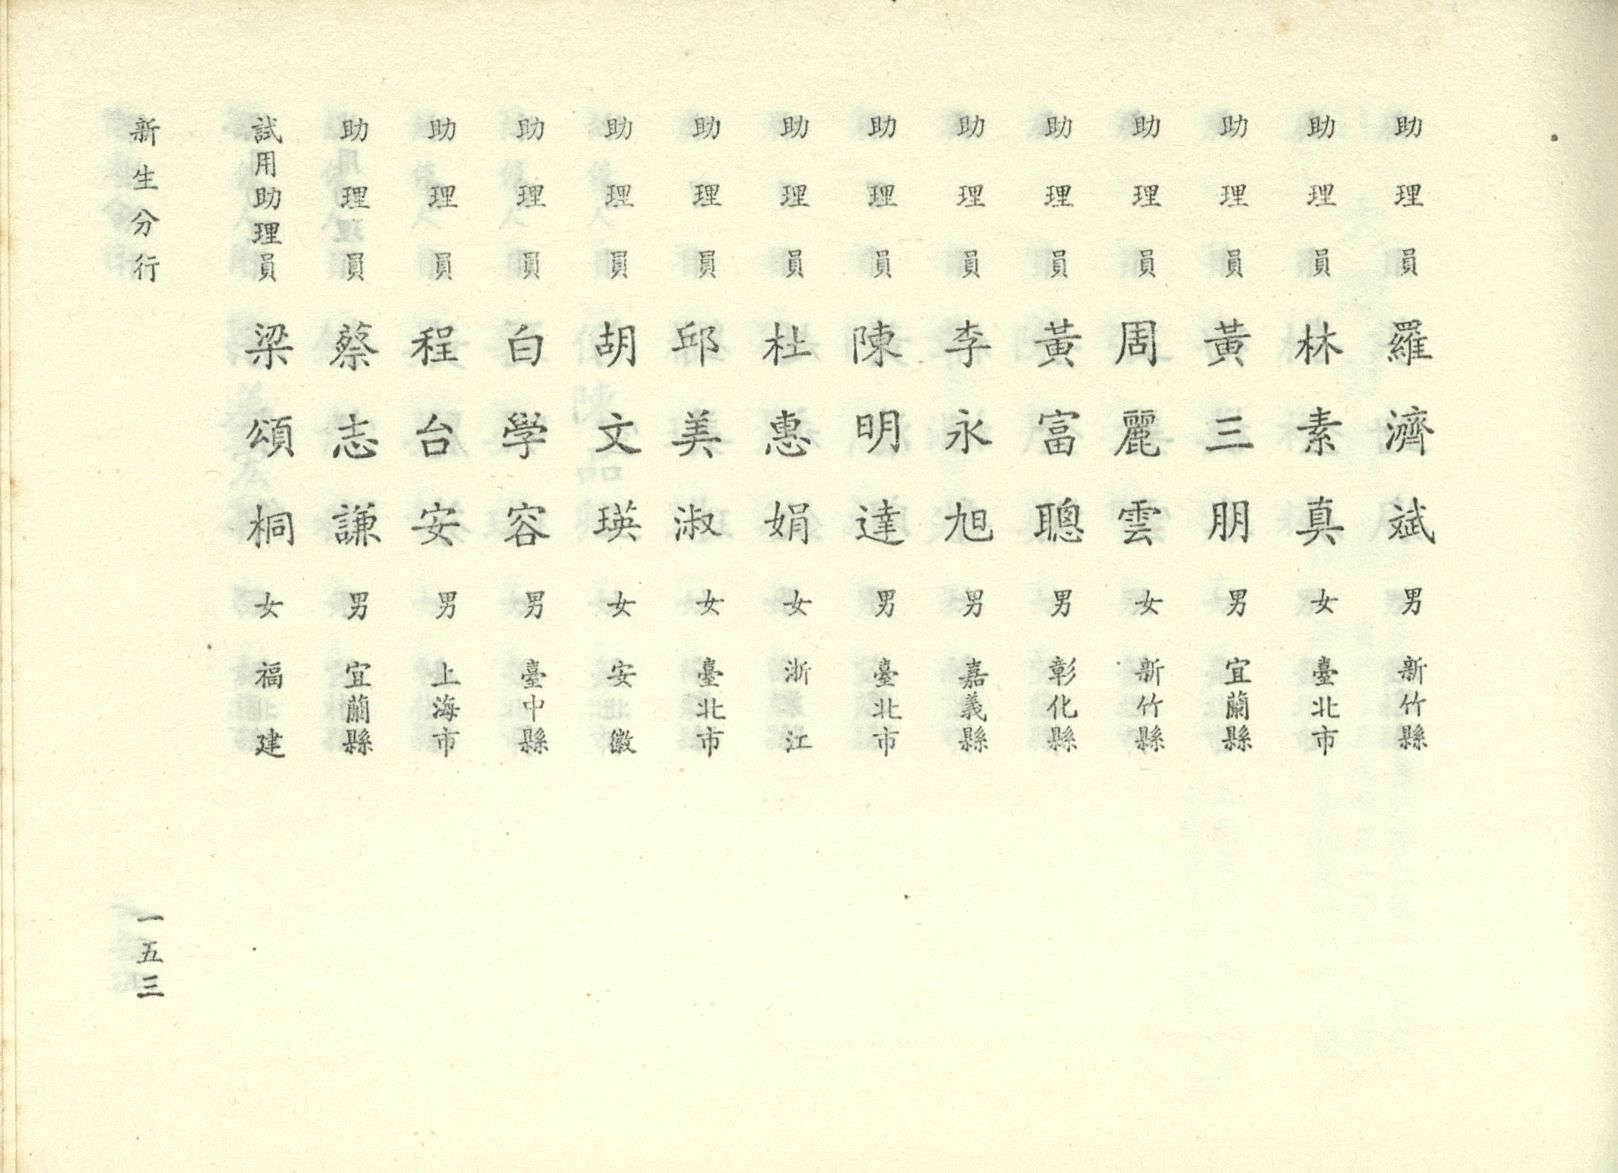 助理員 羅濟斌 男 新竹縣
助理員 林素真 女 臺北市
助理員 黃三朋 男 宜蘭縣
助理員 周麗雲 女 新竹縣
助理員 黃富聰 男 彰化縣
助理員 李永旭 男 嘉義縣
助理員 陳明達 男 臺北市
助理員 杜惠娟 女 浙江
助理員 邱美淑 女 臺北市
助理員 胡文瑛 女 安徽
助理員 白學容 男 臺中縣
助理員 程台安 男 上海市
助理員 蔡志謙 男 宜蘭縣
試用助理員 梁頌桐 女 福建
新生分行 一五三